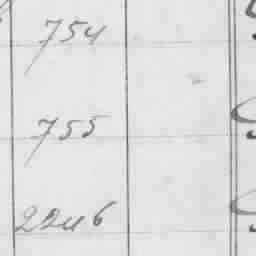 754
755
2246